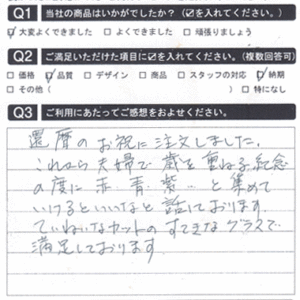 Q1 当社の商品はいかがでしたか？（☑を入れてください。）
☑大変よくできました □よくできました □頑張りましょう
Q2 ご満足いただけた項目に☑を入れてください。（複数回答可）
□価格 ☑品質 □デザイン □商品 □スタッフの対応 ☑納期
□その他（ ）□特になし
Q3 ご利用にあたってご感想をおよせください。
還暦のお祝に注文しました。
これから夫婦で歳を重ねる紀念
の度に赤・青・紫…と集めて
いけるといいなと話しております
ていねいなカットのすてきなグラスで
満足しております